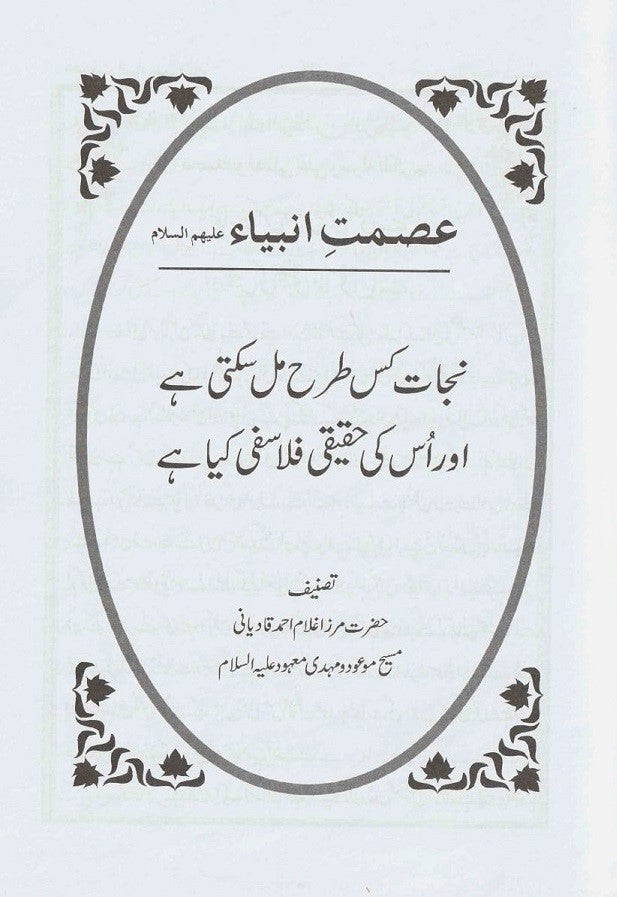 عصمتِ انبیاء علیہم السلام
نجات کس طرح مل سکتی ہے
اور اُس کی حقیقی فلاسفی کیا ہے
تصنیف
حضرت مرزا غلام احمد قادیانی
مسیح موعود و مہدی معہود علیہ السلام